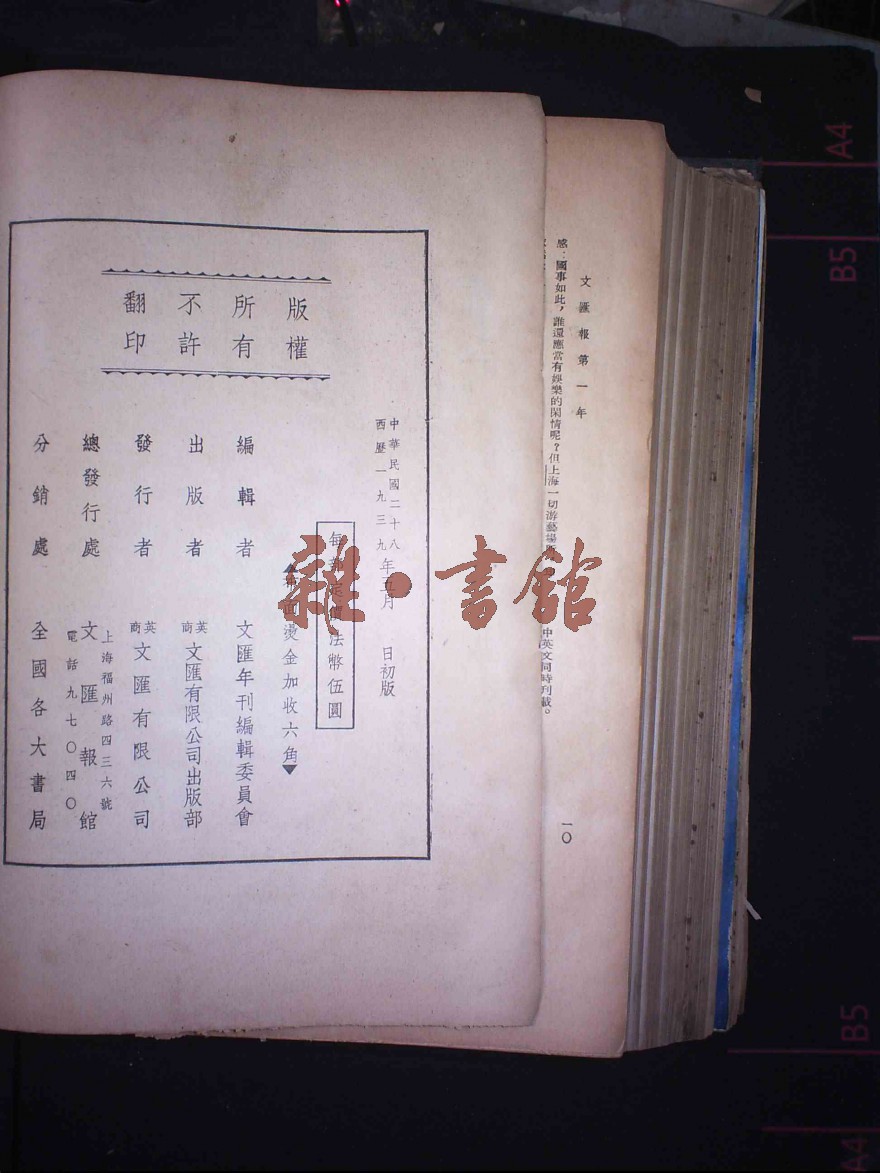 文匯報第一年
感：國事如此，誰還應當有娛樂的閑情呢？但上海一切游藝場
中英文同時刊載。
一〇
版權
所有
不許
翻印
中華民國二十八
西歷一九三九
年五月　日初版
每部定價法幣伍圓
▲布面燙金加收六角▼
編輯者　文匯年刊編輯委員會
出版者　英商文匯有限公司出版部
發行者　英商文匯有限公司
總發行處　文匯報館
上海福州路四三六號
電話九七〇四〇
分銷處　全國各大書局
雜·書館
A4
B5
B5
A4